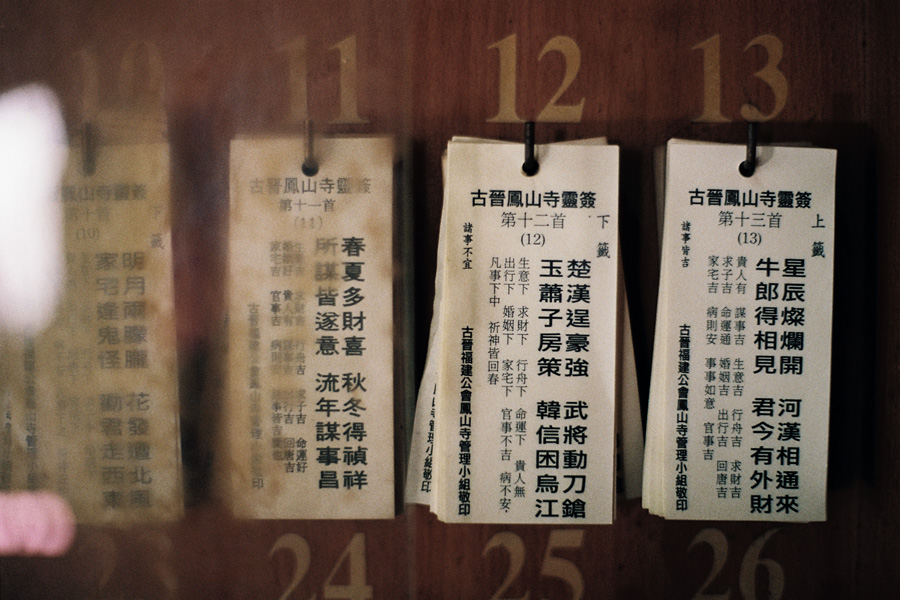 10
11
12
13
第十首
(10)
下
籤
明月兩朦朧 花發遭北風
家宅逢鬼怪 勸君走西東
古晉鳳山寺靈簽
第十一首
(11)
春夏多財喜 秋冬得禎祥
所謀皆遂意 流年謀事昌
古晉鳳山寺靈簽
第十二首
(12)
下
籤
楚漢逞豪強 武將動刀鎗
玉蕭子房策 韓信困烏江
生意下 求財下 行舟下 命運下 貴人無
出行下 婚姻下 家宅下 官事不吉 病不安,
凡事下中 祈神皆回春
諸事不宜
古晉福建公會鳳山寺管理小組敬印
古晉鳳山寺靈簽
第十三首
(13)
上
籤
星辰燦爛開 河漢相通來
牛郎得相見 君今有外財
貴人有 謀事吉 生意吉 行舟吉 求財吉
求子吉 命運通 婚姻吉 出行吉 回唐吉
家宅吉 病則安 事事如意 官事吉
諸事皆吉
古晉福建公會鳳山寺管理小組敬印
23
24
25
26